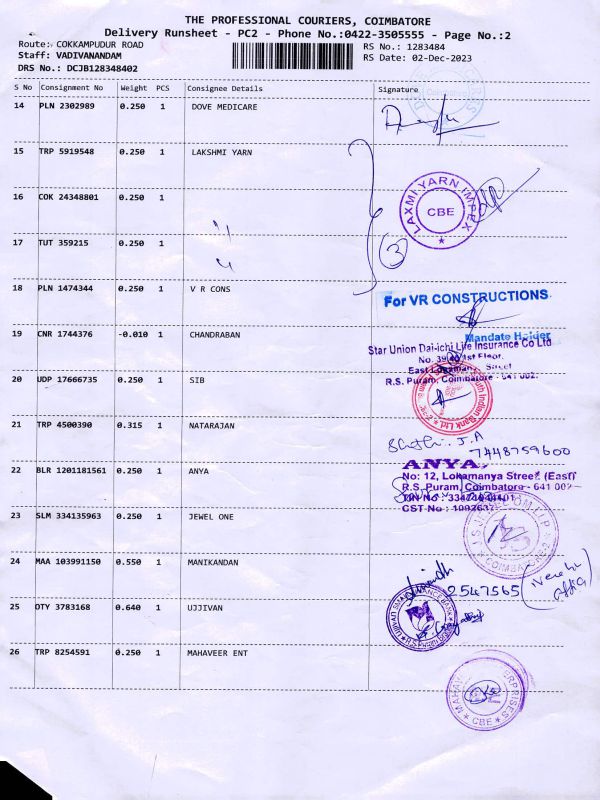 THE PROFESSIONAL COURIERS, COIMBATORE
Delivery Runsheet - PC2 - Phone No.:0422-3505555 - Page No.:2
Route: COKKAMPUDUR ROAD RS No.: 1283484
Staff: VADIVANANDAM RS Date: 02-Dec-2023
DRS No.: DCJB128348402
S No Consignment No Weight PCS Consignee Details Signature
14 PLN 2302989 0.250 1 DOVE MEDICARE
15 TRP 5919548 0.250 1 LAKSHMI YARN
16 COK 24348801 0.250 1
LAXMI YARN IMPEX
CBE
17 TUT 359215 0.250 1
3
18 PLN 1474344 0.250 1 V R CONS
For VR CONSTRUCTIONS
Mandate Holder
19 CNR 1744376 -0.010 1 CHANDRABAN
Star Union Dai-ichi Life Insurance Co Ltd
1st Floor,
R.S. Puram, Coimbatore - 641 002.
20 UDP 17666735 0.250 1 SIB
South Indian Bank Ltd.
21 TRP 4500390 0.315 1 NATARAJAN
J.A
7448759600
22 BLR 1201181561 0.250 1 ANYA
ANYA
No: 12, Lokamanya Street (East)
R.S. Puram, Coimbatore - 641 002
CST No :
23 SLM 334135963 0.250 1 JEWEL ONE
24 MAA 103991150 0.550 1 MANIKANDAN
2547565
25 OTY 3783168 0.640 1 UJJIVAN
26 TRP 8254591 0.250 1 MAHAVEER ENT
CBE